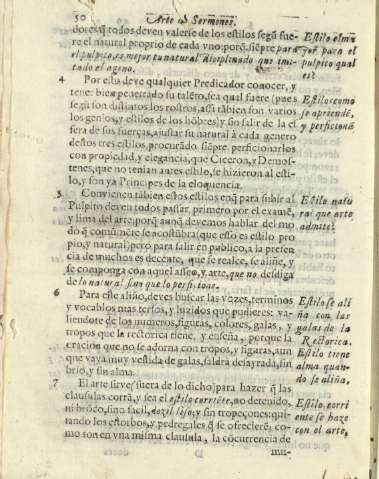 50 Arte de Sermones.
dores q̃ todos deven valerse de los estilos segũ fue-
re el natural proprio de cada vno: porq̃ siẽpre para
el pulpito, es mejor tu natural disciplinado que imi-
tado el ageno.
Estilo el me
yor para el
pulpito qual
es?
4 Por esto deve qualquier Predicador conocer, y
tener bien penetrado su talẽto, sea qual fuere (pues
segũ son distintos los rostros, assi tãbien son varios
los genios, y estilos de los hõbres) y sin salir de la el
fera de sus fuerças, ajustar su natural à cada genero
destos tres estilos, procurãdo siẽpre perficionarlos
con propiedad, y elegancia, que Ciceron, y Demos-
tenes, que no tenian aures estilo, se hizieron al esti-
lo, y son ya Principes de la eloquencia.
Estilo como
se aprende,
y perficiona
5 Convienen tãbien estos estilos enq̃ para subir al
Pulpito deven todos passar primero por el examẽ,
y lima del arte, porq̃ aunq̃ devemos hablar del mo
dò q̃ comunmẽte se acostũbra (que esso es estilo pro
pio, y natural) pero para salir en publico, a la presen
cia de muchos es decente, que se realce, se aliñe, y
se componga con aquel asseo, y arte, que no desdiga
de lo natural sino que lo perficione.
Estilo natu
ral que arte
admite?
6 Para este aliño, deves buscar las vozes, terminos
y vocablos mas tersos, y luzidos que pudieres: va-
liendote de los numeros, figuras, colores, galas, y
tropos que la rectorica tiene, y enseña, porque la
oracion que no se adorna con tropos, y figuras, aun
que vaya muy vestida de galas, saldrà delayrada, sin
brio, y sin alma.
Estilo se ali
ña con las
galas de la
Rectorica.
Estilo tiene
alma quan-
do se aliña.
7 El arte sirve (fuera de lo dicho) para hazer q̃ las
clausulas corrã, y sea el estilo corriẽte, no detenido,
ni bronco, sino facil, docil liso, y sin tropeçones: qui-
tando los estorbos, y pedregales q̃ se ofrecierẽ; co-
mo son en vna misma clausula, la cõcurrencia de
Estilo corri
ente se haze
con el arte,
mu-